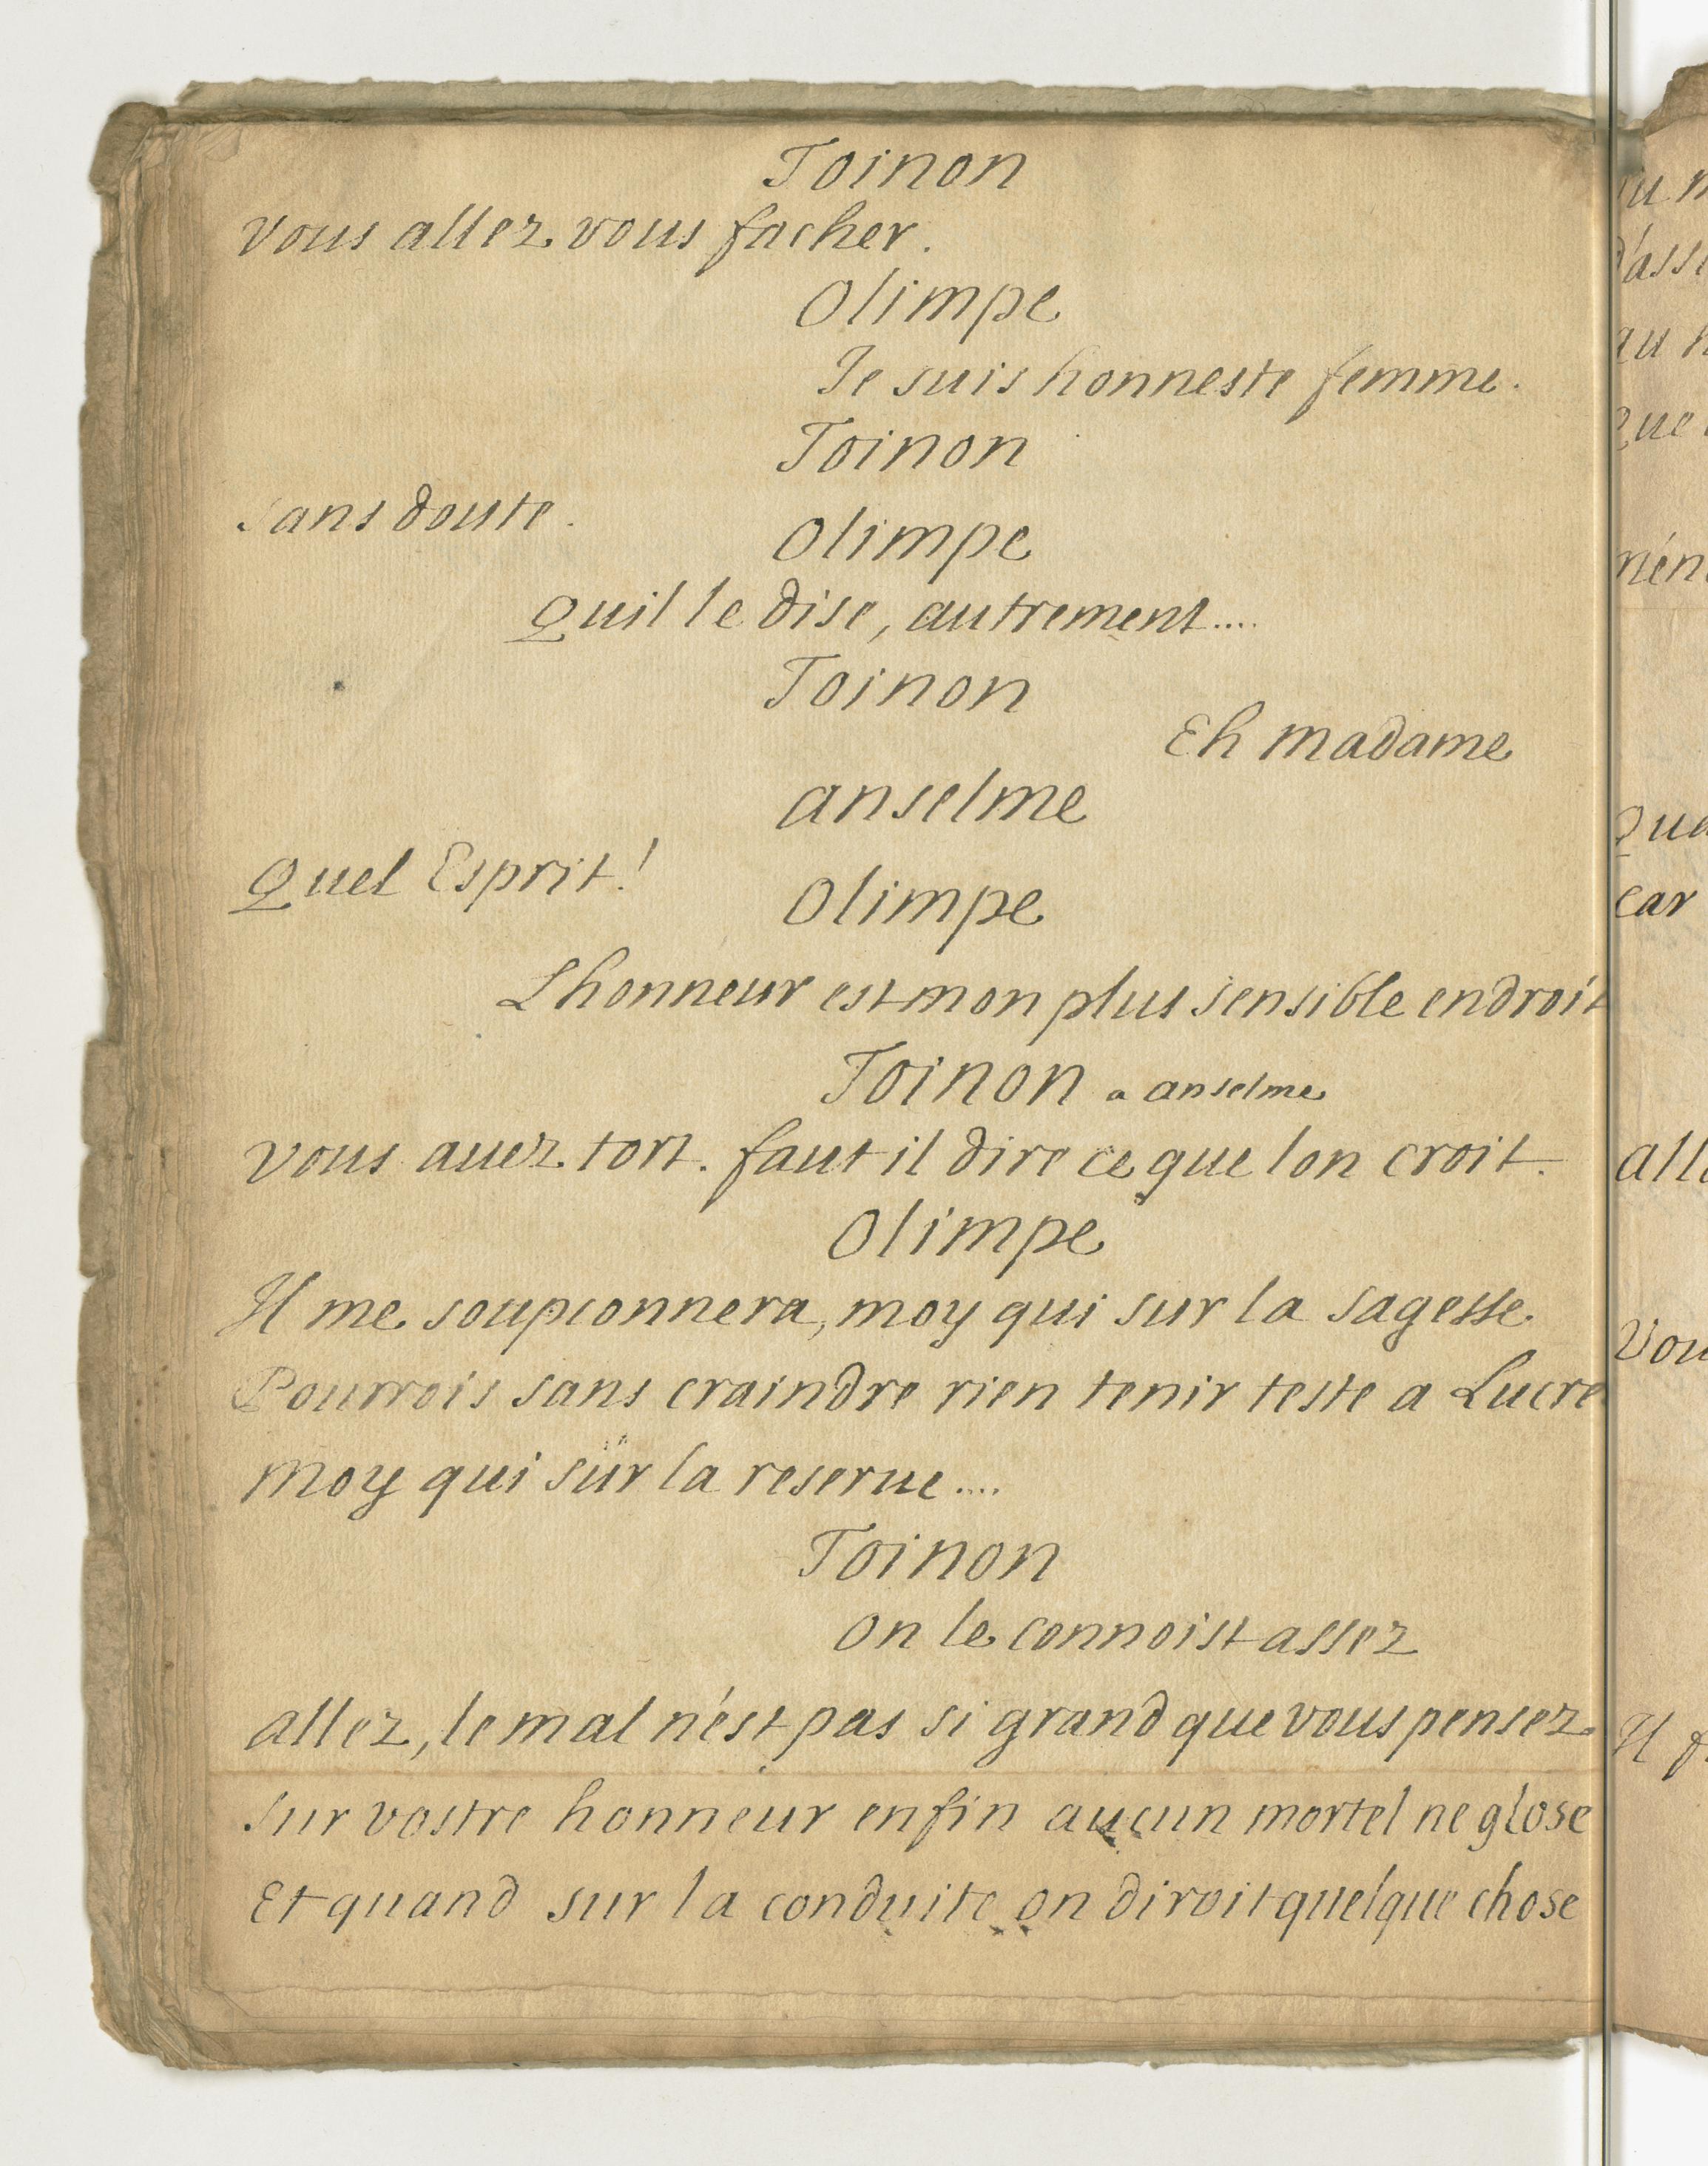 Toinon
vous allez vous facher.
Olimpe
Je suis honneste femme.
Toinon
sans doute.
Olimpe
Quil le dise, autrement....
Toinon
Eh madame
anselme
Quel Esprit!
Olimpe
Lhonneur est mon plus sensible endroit
Toinon a anselme
vous auez tort. faut il dire ce que lon croit.
Olimpe
Il me soupconnera, moy qui sur la sagesse
Pourrois sans craindre rien tenir teste a Lucre
moy qui sur la reserue....
Toinon
on le connoist assez
allez, le mal n'est pas si grand que vous pensez
sur vostre honneur enfin aucun mortel ne glose
Et quand sur la conduite on diroit quelque chose
car
Vou
Il f